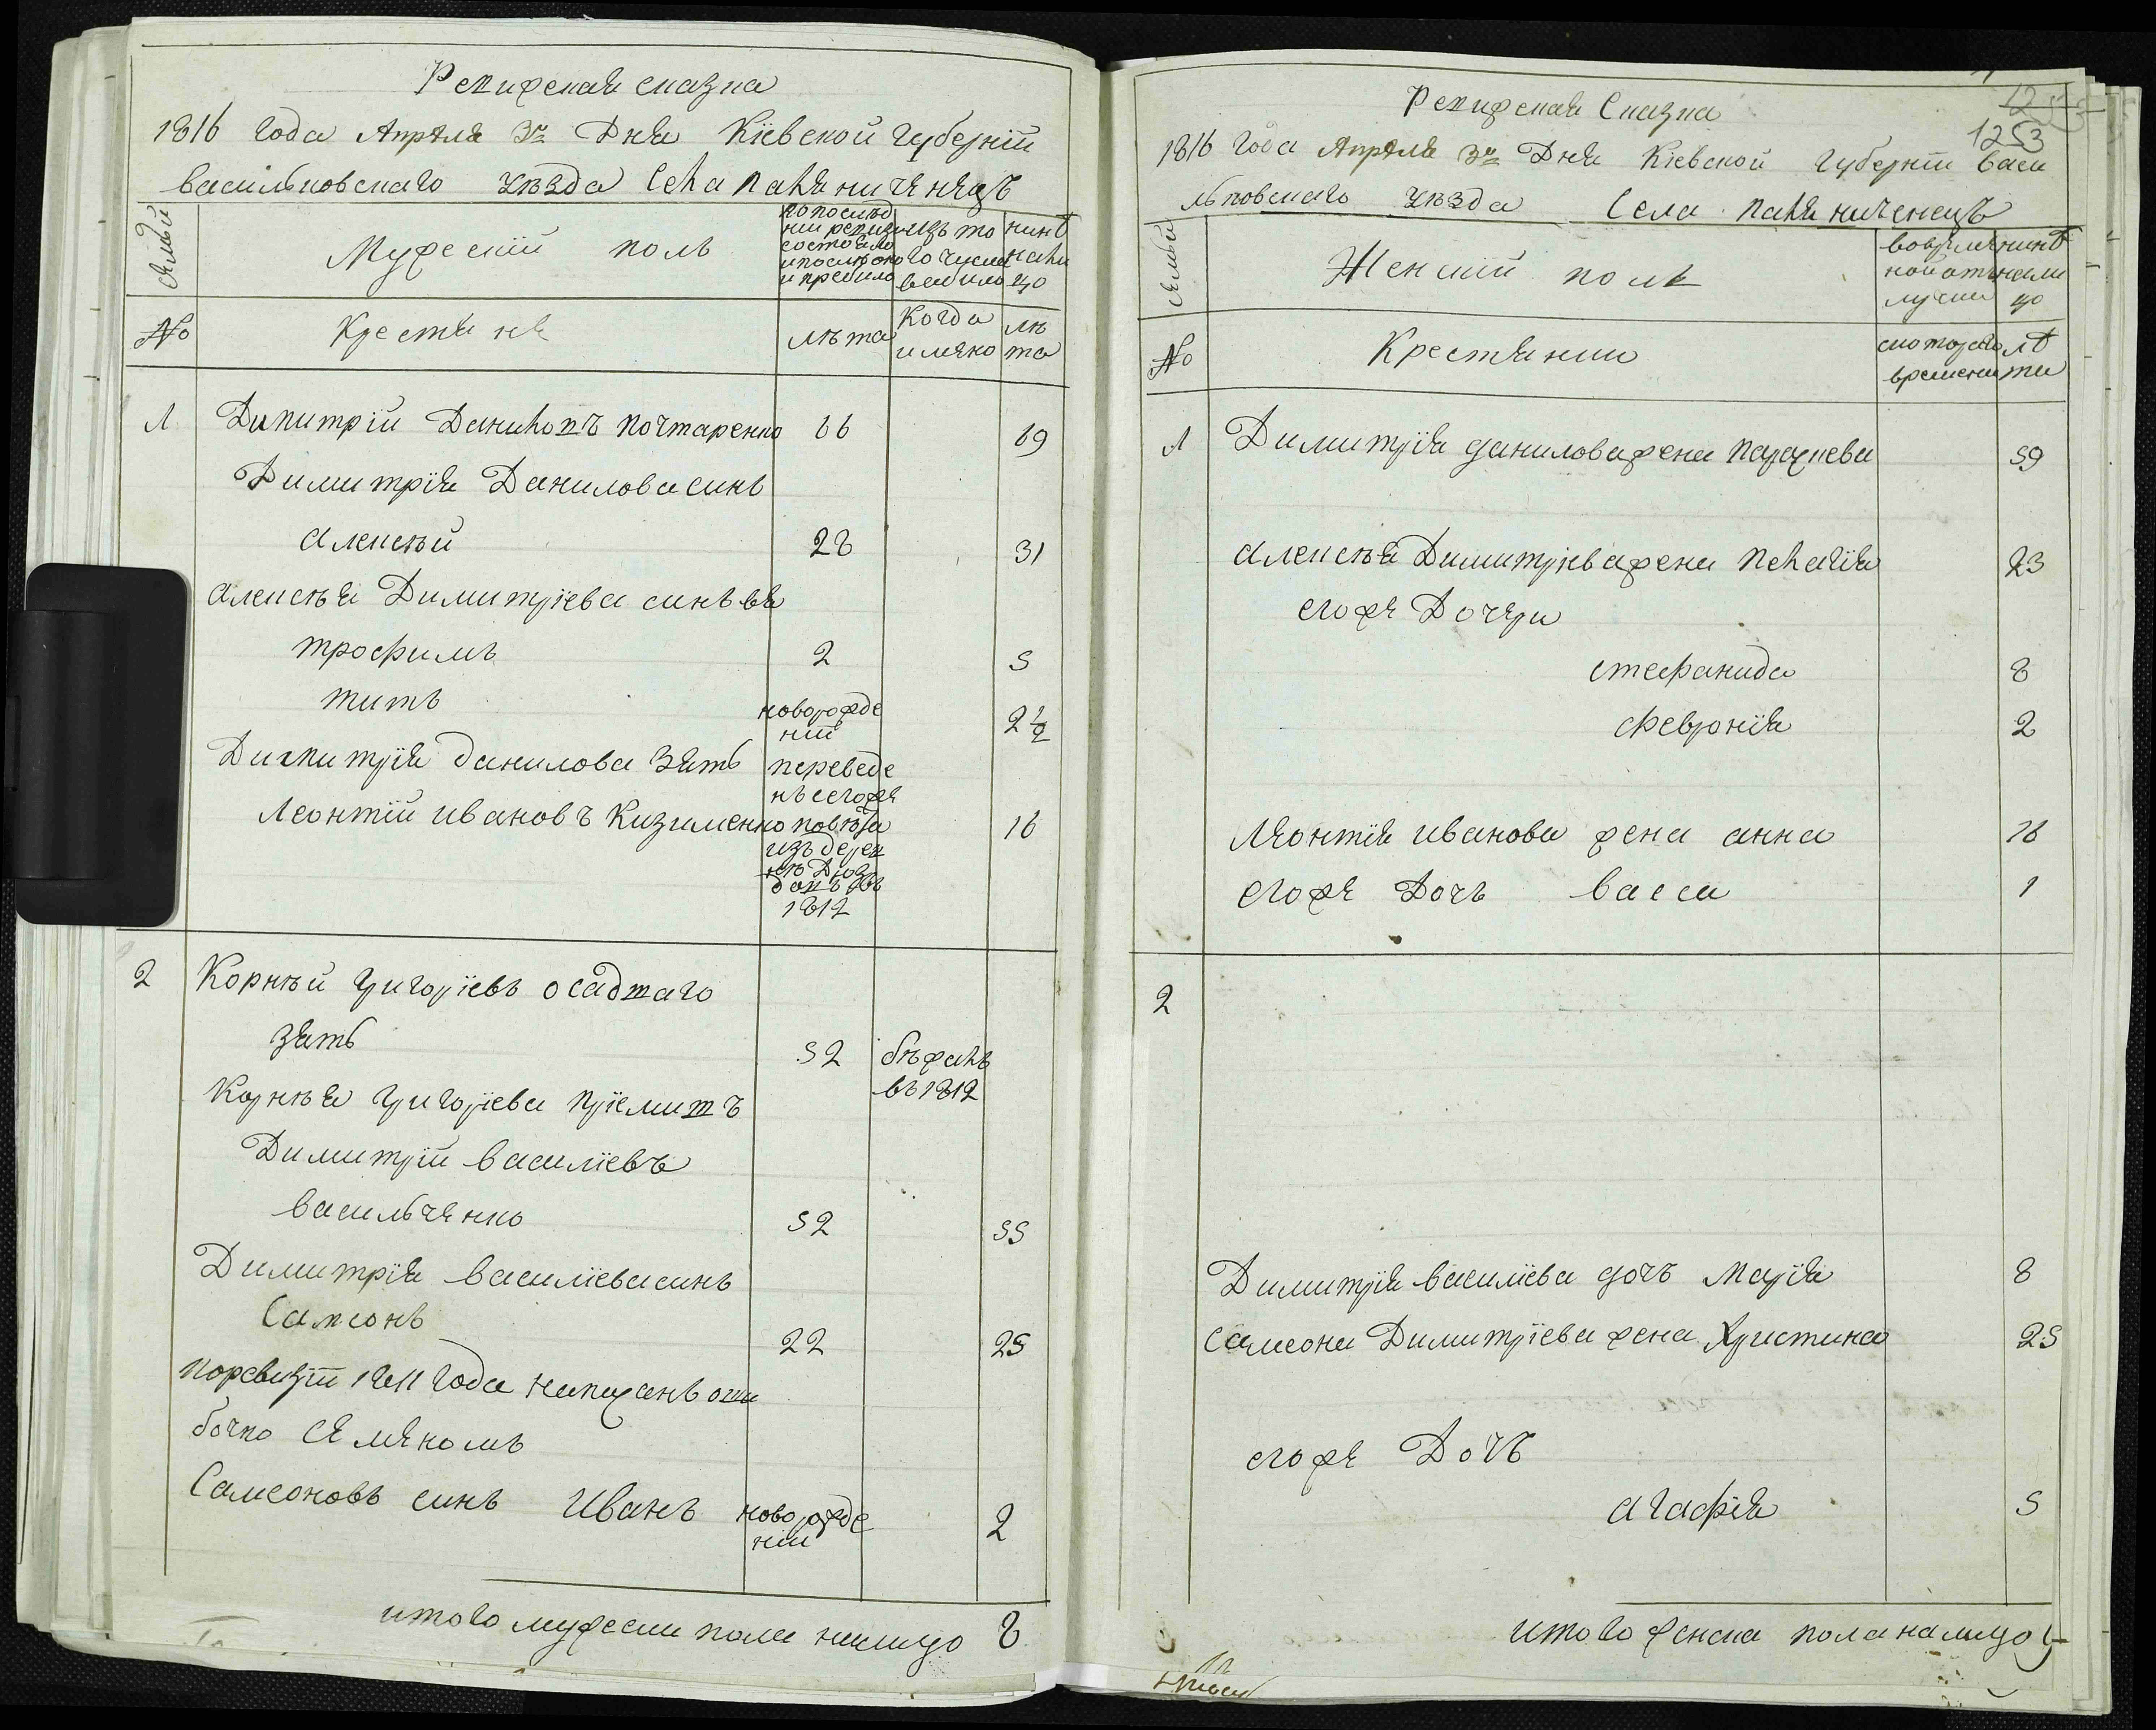 Ревизская сказка
1816 года Апреля 3го Дня Кіевской Губерніи
васильковскаго уѣзда Села паляниченецъ
Семьи
Мужескій полъ
по послѣд
ній ревизи
состояло
и послѣ оно
и прибило
изъ то
го числа
вебило
нинѣ
нали
цо
No
Крестяне
лѣта
Когда
имяно
лѣ
та
1 Димитрій Даниловъ почтаренко 66 69
Димитрія Данилова синъ
алексѣй 28 31
алексѣя Димитріева синовья
трофимъ 2 5
титъ новорожде
ній 2½
Димитрія данилова зять переведе
нъ сегоже
Леонтій ивановъ Кизименко повѣта 16
изъ дерев
1812
2 Корнѣй григоріевъ осаджаго
зять 52 бѣжалъ
въ 1812
Корнѣя григоріева пріемишъ
Димитрій василіевъ
васильченко 52 55
Димитрія василіева синъ
Самсонъ 22 25
поревизіи 1811 года написанъ оши
бочно Семеномъ
Самсоновъ синъ Иванъ новорожде
ній 2
итого мужеска пола налицо 8
1253
1253
Ревизская Сказка
1816 года Апреля 3го Дня Кіевской Губерніи Васи
льковскаго уѣзда Села паляниченецъ
Семьи
Женскій полъ
вовремян
ной отъ
лучки
нинѣ
нали
цо
No
Крестянки
скоторого
времени
лѣ
та
1 Димитрія данилова жена параскева 59
алексѣя Димитріева жена пелагія 23
егоже Дочери
стефанида 8
февронія 2
Леонтія иванова жена анна 16
егоже Дочь васса 1
2
Димитрія василіева дочь Марія 8
Самсона Димитріева жена Христина 25
егоже Дочь
агафія 5
итого женска пола налицо 9